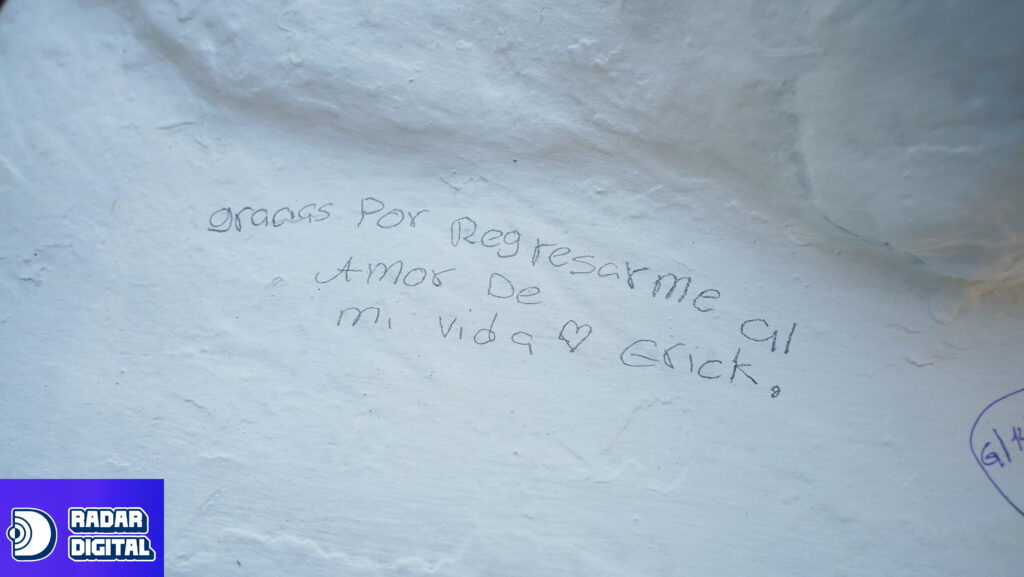 gracias Por Regresarme al
Amor De
mi vida ♡ Erick.
G/
RADAR
DIGITAL